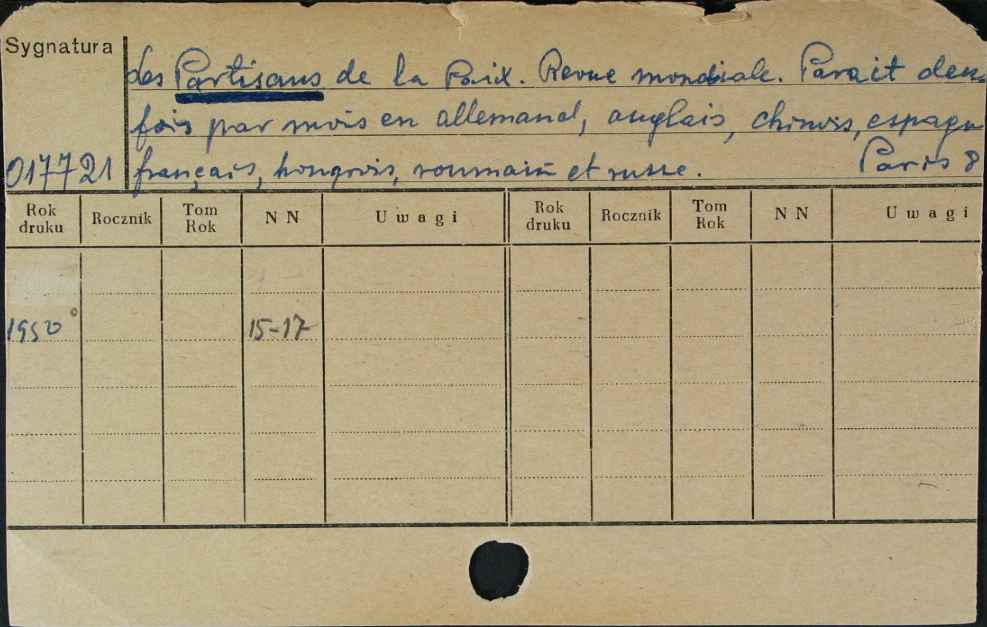 Sygnatura
des Partisans de la Paix. Revue mondiale. Parait deux
fois par mois en allemand, anglais, chinois, espagn
017721 français, hongrois, roumain et russe. Paris 8
Rok druku Rocznik Tom Rok N N Uwagi Rok druku Rocznik Tom Rok N N Uwagi
1950 15-17